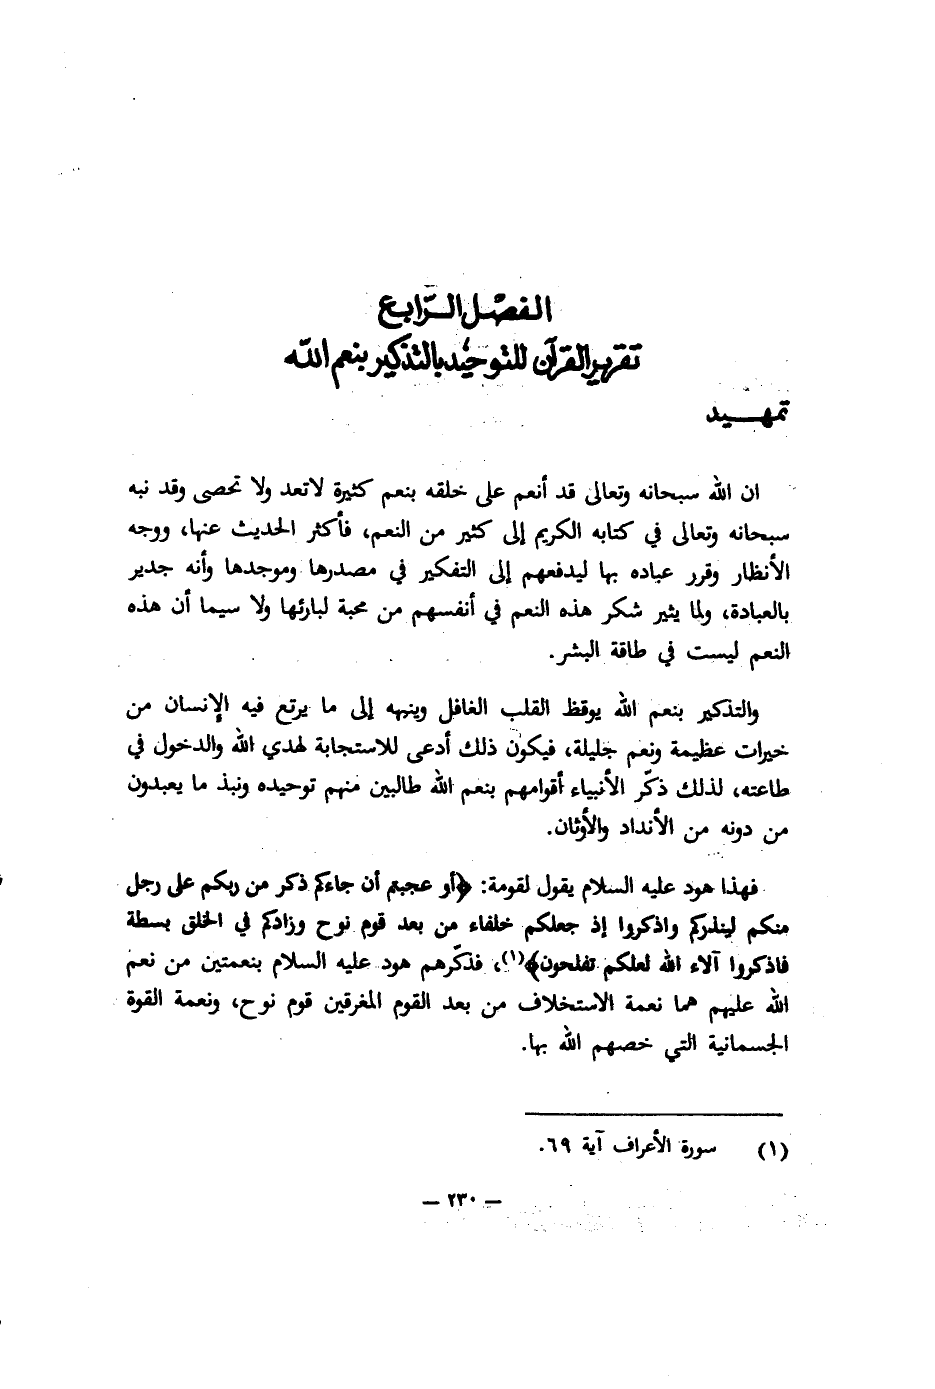 الفصل الرابع
تقرير القرآن للتوحيد بالتذكير بنعم الله
تمهيد
ان الله سبحانه وتعالى قد أنعم على خلقه بنعم كثيرة لاتعد ولا تحصى وقد نبه
سبحانه وتعالى في كتابه الكريم إلى كثير من النعم، فأكثر الحديث عنها، ووجه
الأنظار وقرر عباده بها ليدفعهم إلى التفكير في مصدرها وموجدها وأنه جدير
بالعبادة، ولما يثير شكر هذه النعم في أنفسهم من محبة لبارئها ولا سيما أن هذه
النعم ليست في طاقة البشر.
والتذكير بنعم الله يوقظ القلب الغافل وينبهه إلى ما يرتع فيه الإنسان من
خيرات عظيمة ونعم جليلة، فيكون ذلك أدعى للاستجابة لهدي الله والدخول في
طاعته، لذلك ذكّر الأنبياء أقوامهم بنعم الله طالبين منهم توحيده ونبذ ما يعبدون
من دونه من الأنداد والأوثان.
فهذا هود عليه السلام يقول لقومة: ﴿أو عجبتم أن جاءكم ذكر من ربكم على رجل
منكم لينذركم واذكروا إذ جعلكم خلفاء من بعد قوم نوح وزادكم في الخلق بسطة
فاذكروا آلاء الله لعلكم تفلحون﴾(١)، فذكّرهم هود عليه السلام بنعمتين من نعم
الله عليهم هما نعمة الاستخلاف من بعد القوم المغرقين قوم نوح، ونعمة القوة
الجسمانية التي خصهم الله بها.
(١) سورة الأعراف آية ٦٩.
— ٢٣٠ —